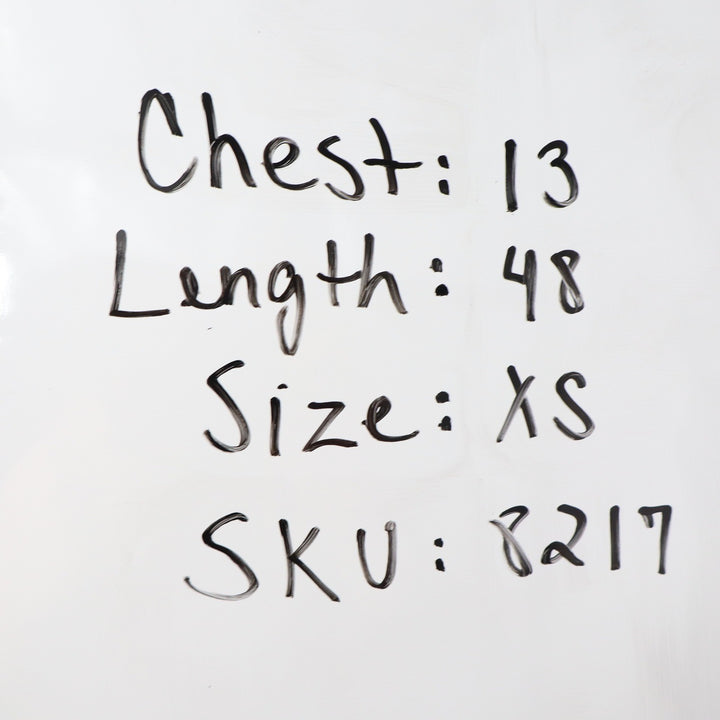 Chest: 13
Length: 48
Size: XS
SKU: 8217